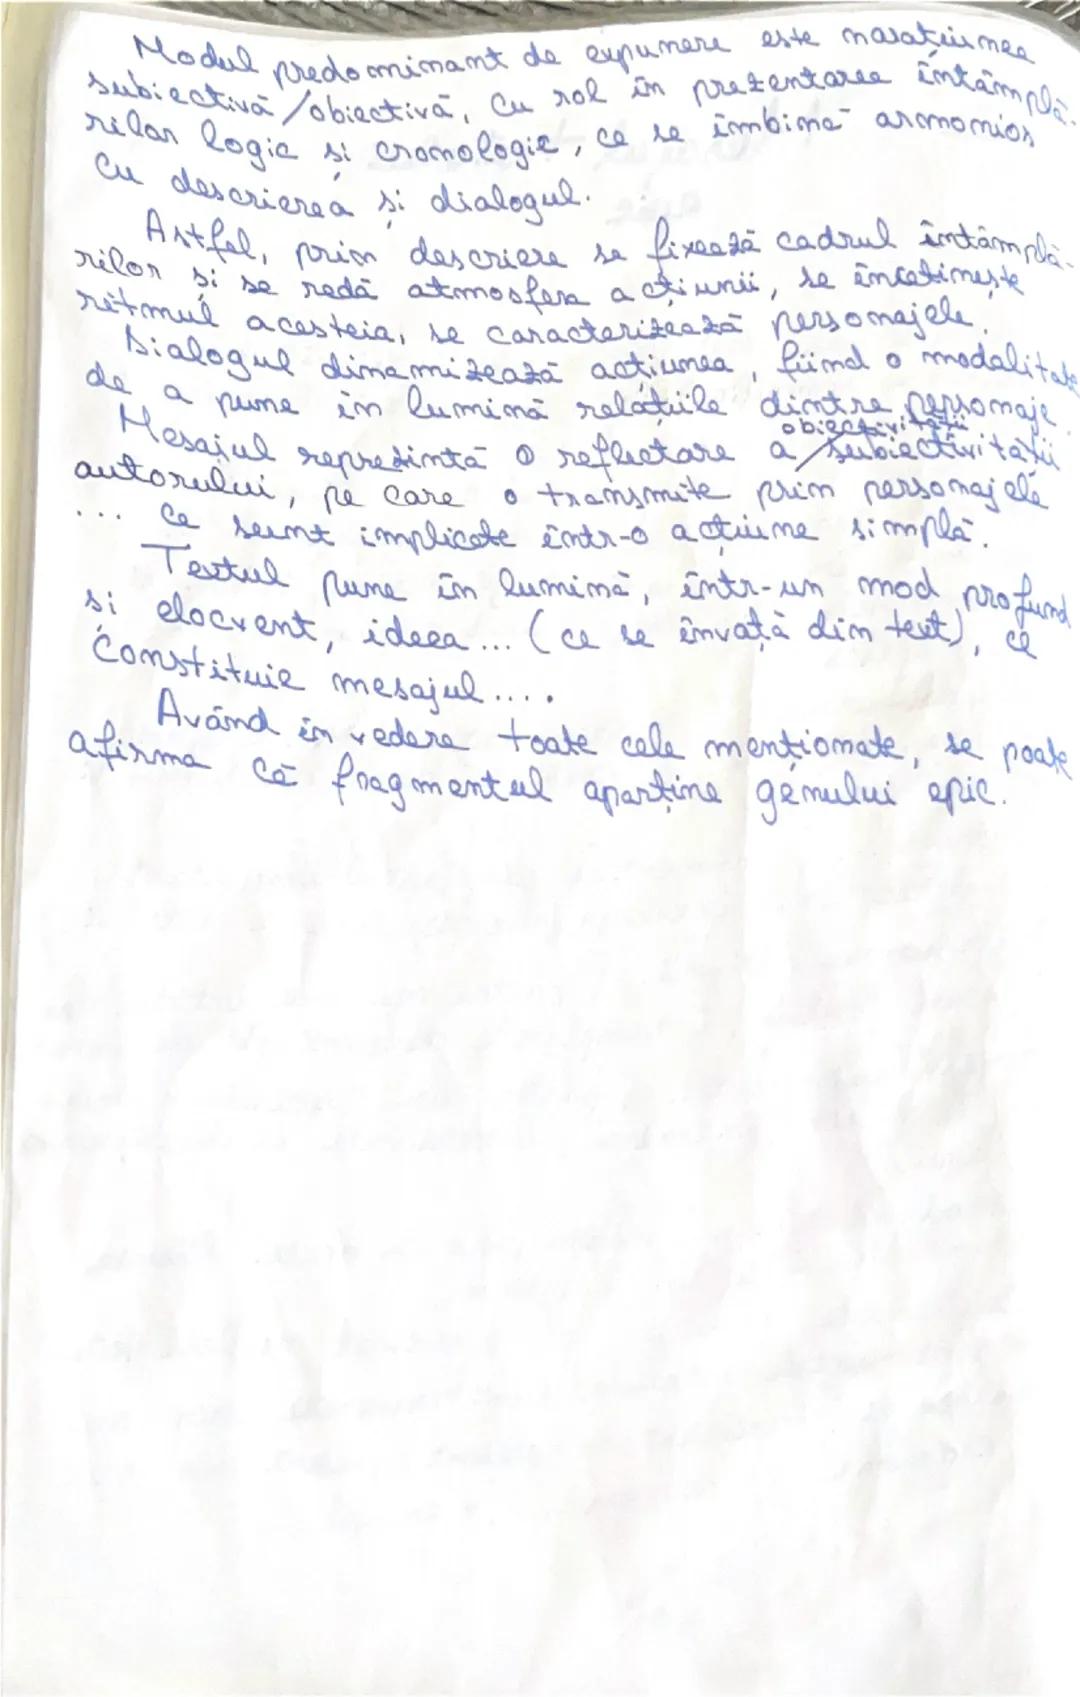 Modul predominant de expunere este narațiunea
subiectivă/obiectivă, cu rol în prezentarea întâmplă-
rilor logic și cronologic, ce se îmbină armonios
cu descrierea și dialogul.
Astfel, prin descriere se fixează cadrul întâmplă-
rilor și se redă atmosfera acțiunii, se încetinește
ritmul acesteia, se caracterizează personajele.
Dialogul dinamizează acțiunea, fiind o modalitate
de a pune în lumină relațiile dintre personaje.
obiectivității
Mesajul reprezintă o reflectare a/subiectivității
autorului, pe care o transmite prin personajele
... ce sunt implicate într-o acțiune simplă.
Textul pune în lumină, într-un mod profund
și elocvent, ideea... (ce se învață din text), ce
constituie mesajul....
Având în vedere toate cele menționate, se poate
afirma că fragmentul aparține genului epic.